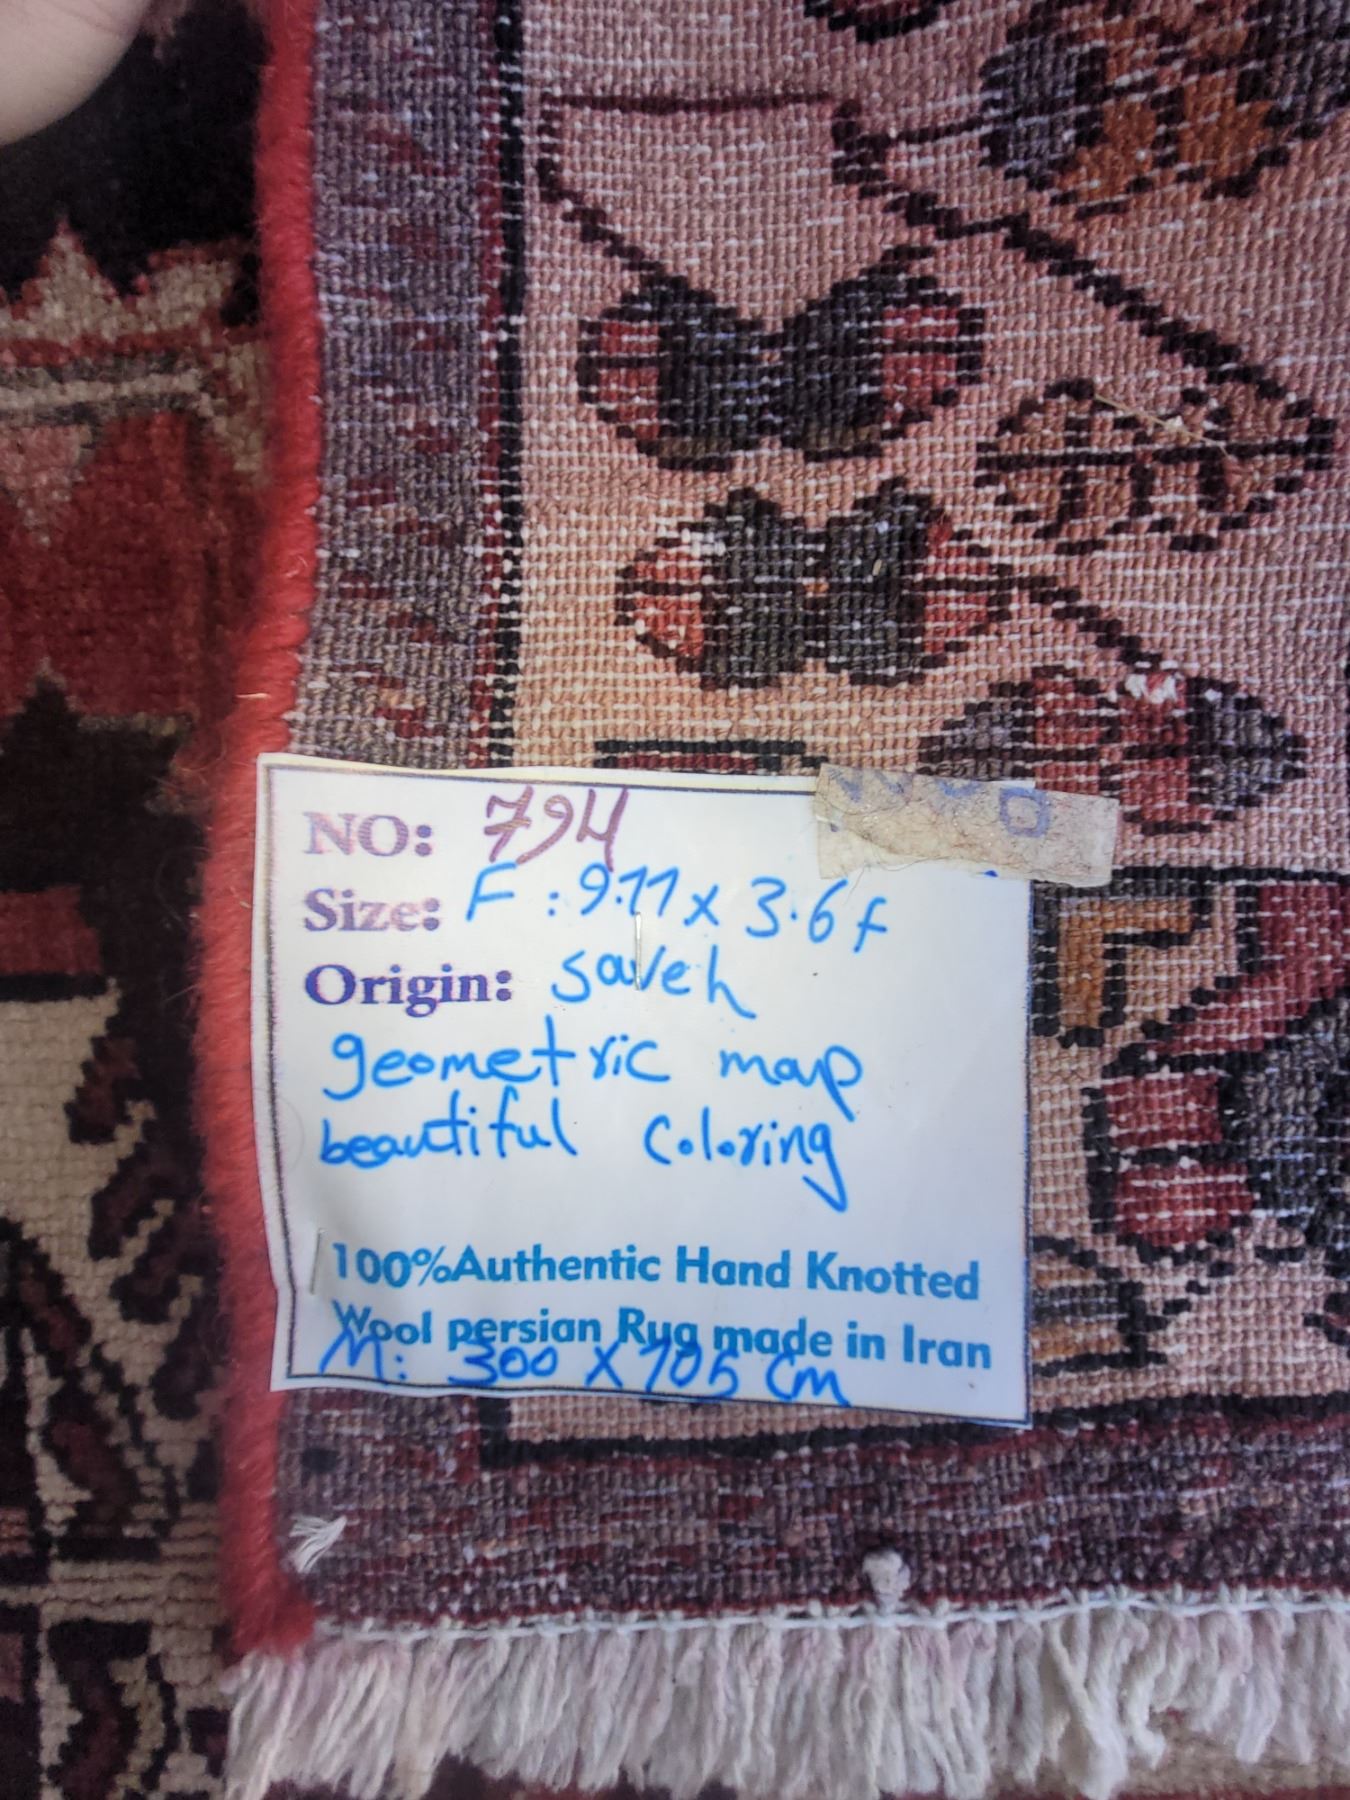 NO: 794
Size: F : 9.11 x 3.6 f
Origin: saveh
geometric map
beautiful coloring
100%Authentic Hand Knotted
Wool persian Rug made in Iran
M: 300 X 105 cm